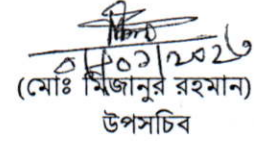 ০১|০১|২০২৬
(মোঃ মিজানুর রহমান)
উপসচিব